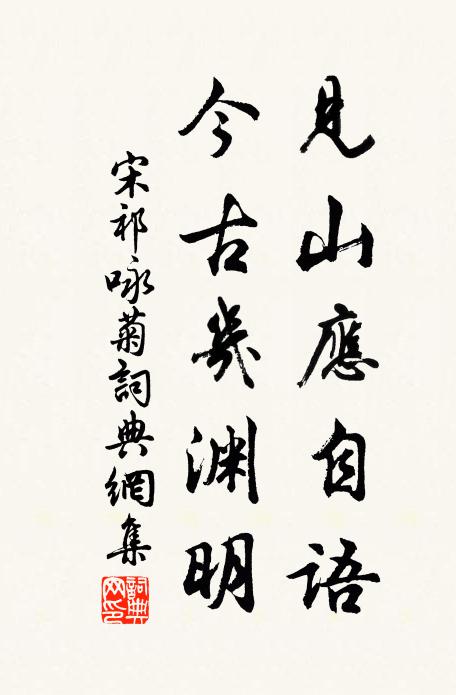 見山應自語
今古幾渊明
宋祁咏菊詞典網集
詞典网印